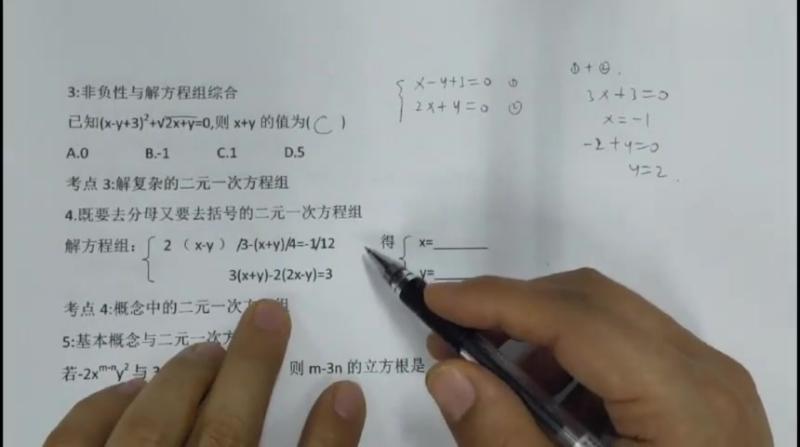 3:非负性与解方程组综合
已知(x-y+3)²+√2x+y=0,则 x+y 的值为( C )
A.0 B.-1 C.1 D.5
考点 3:解复杂的二元一次方程组
4.既要去分母又要去括号的二元一次方程组
解方程组: { 2（x-y）/3-(x+y)/4=-1/12 得 { x=______
3(x+y)-2(2x-y)=3 y=
考点 4:概念中的二元一次方
5:基本概念与二元一次方
若-2xᵐ⁻ⁿy²与 3 则 m-3n 的立方根是
{ x-y+3=0 ①
2x+y=0 ②
①+②.
3x+3=0
x=-1
-2+y=0
y=2.